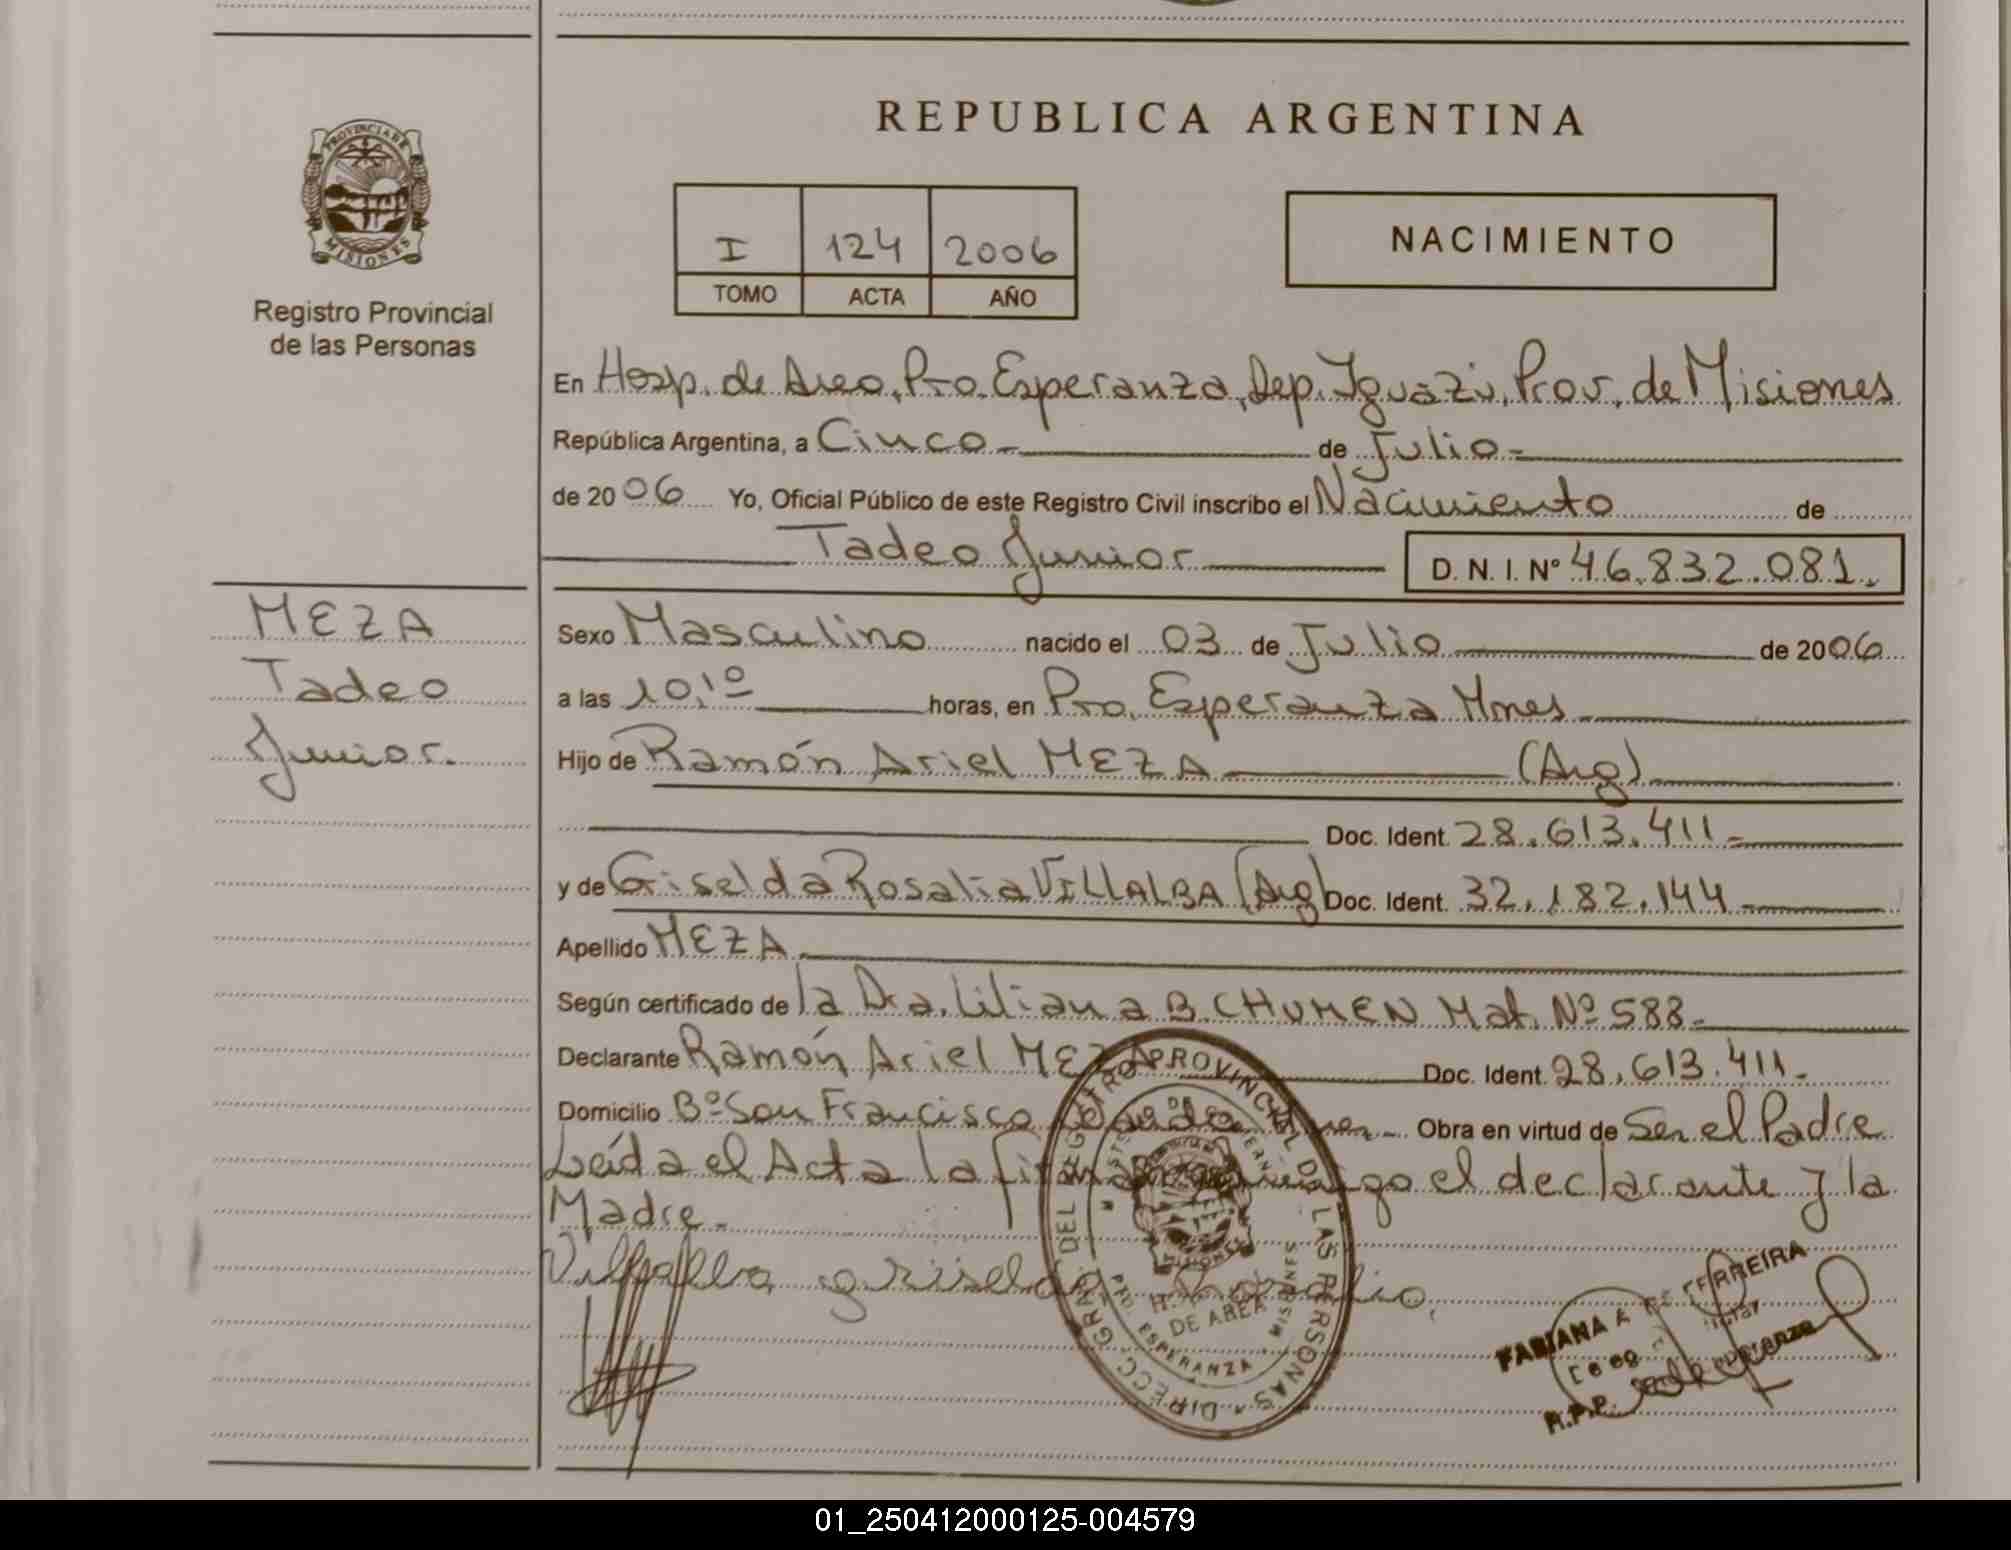 REPUBLICA ARGENTINA
PROVINCIA DE
MISIONES
Registro Provincial
de las Personas
I 124 2006
TOMO ACTA AÑO
NACIMIENTO
En Hosp. de Area, Pto. Esperanza, Dep. Iguazú, Prov. de Misiones
República Argentina, a Cinco de Julio
de 2006 Yo, Oficial Público de este Registro Civil inscribo el Nacimiento de
Tadeo Junior D. N. I. Nº 46.832.081.
MEZA
Tadeo
Junior.
Sexo Masculino nacido el 03 de Julio de 2006
a las 10,1º horas, en Pto. Esperanza Mnes
Hijo de Ramón Ariel MEZA (Arg)
Doc. Ident. 28.613.411.-
y de Giselda Rosalia VILLALBA (Arg) Doc. Ident. 32.182.144
Apellido MEZA
Según certificado de la Dra. Liliana B CHUMEN Mat. Nº 588.-
Declarante Ramón Ariel MEZA Doc. Ident. 28.613.411.-
Domicilio Bº San Francisco Obra en virtud de Ser el Padre
Leída el Acta la firman conmigo el declarante y la
Madre.-
Villalba griselda Rosalia.
DIRECC. GRAL DEL REGISTRO PROVINCIAL DE LAS PERSONAS
PTO. ESPERANZA MISIONES
DE AREA
FABIANA A FERREIRA
R.P.P.
01_250412000125-004579